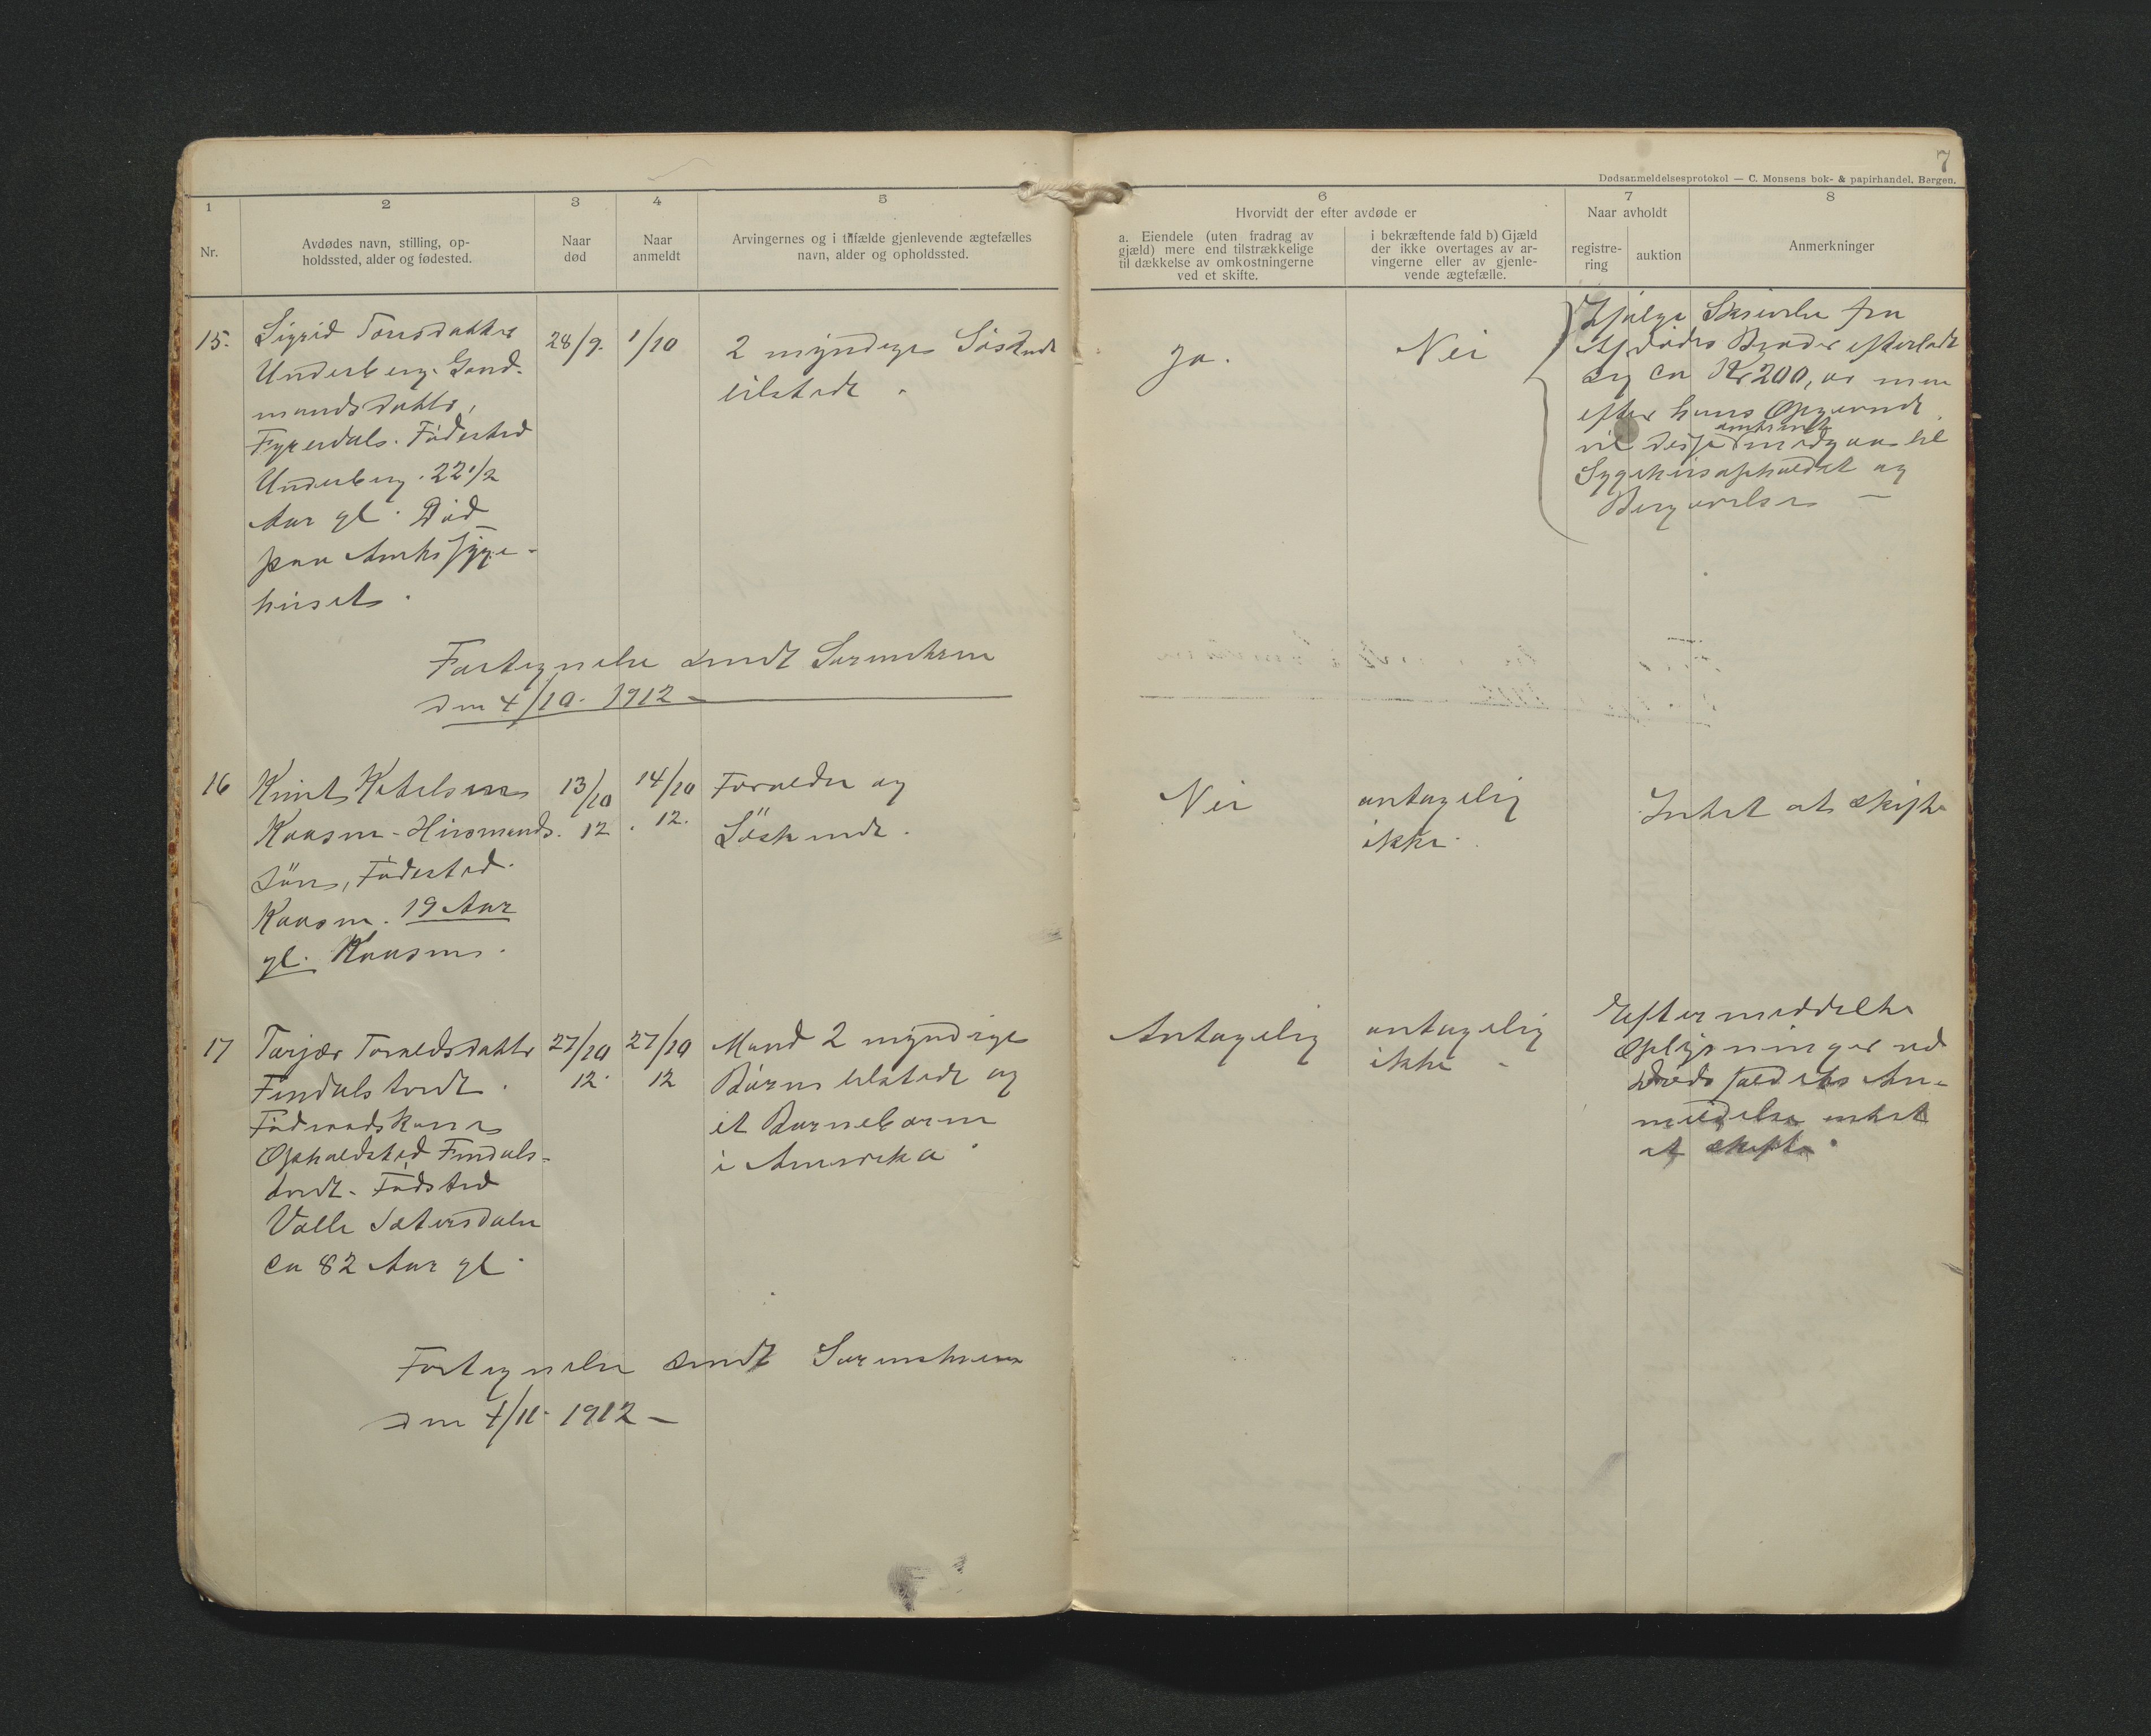 7
Dødsanmeldelsesprotokol — C. Monsens bok- & papirhandel, Bergen.
1
Nr.
2
Avdødes navn, stilling, op-
holdssted, alder og fødested.
3
Naar
død
4
Naar
anmeldt
5
Arvingernes og i tilfælde gjenlevende ægtefælles
navn, alder og opholdssted.
6
Hvorvidt der efter avdøde er
a. Eiendele (uten fradrag av
gjæld) mere end tilstrækkelige
til dækkelse av omkostningerne
ved et skifte.
i bekræftende fald b) Gjæld
der ikke overtages av ar-
vingerne eller av gjenle-
vende ægtefælle.
7
Naar avholdt
registre-
ring
auktion
8
Anmerkninger
15.
Sigrid Tonsdatter
Underberg. Gaard-
mandsdatter,
Fyresdal. Födested
Underberg. 22 1/2
Aar gl. Död
paa Amtssyge-
huset.
28/9.
1/10
2 myndige Söskende
tilstede.
Ja.
Nei
Ifölge Skrivelse fra
Afdödes Broder efterlod
sig ca Kr 200, og men
efter hans Opgivende
vil disse medgaa til
Sygehusopholdet og
Begravelse —
Fortegnelse sendt Sorenskriveren
den 4/10. 1912 —
16
Knut Ketilsen
Kaasen - Husmands-
sön, Födested
Kaasen. 19 Aar
gl. Kaasen.
13/10
12.
14/10
12.
Forældre og
Söskende.
Nei
antagelig
ikke.
Intet at skifte
17
Tarjær Tovaldsdatter
Findalstvedt.
Föderaadskone
Opholdsted Findals-
tvedt. Födsted
Valle Sætersdalen
ca 82 Aar gl.
27/10
12.
27/10
12
Mand 2 myndige
Börn tilstede og
et Barnebarn
i Amerika
Antagelig
antagelig
ikke -
Efter meddelte
Oplysninger ved
Dödsfaldets An-
meldelse intet
at skifte.
Fortegnelse sendt Sorenskriveren
den 4/11. 1912 —